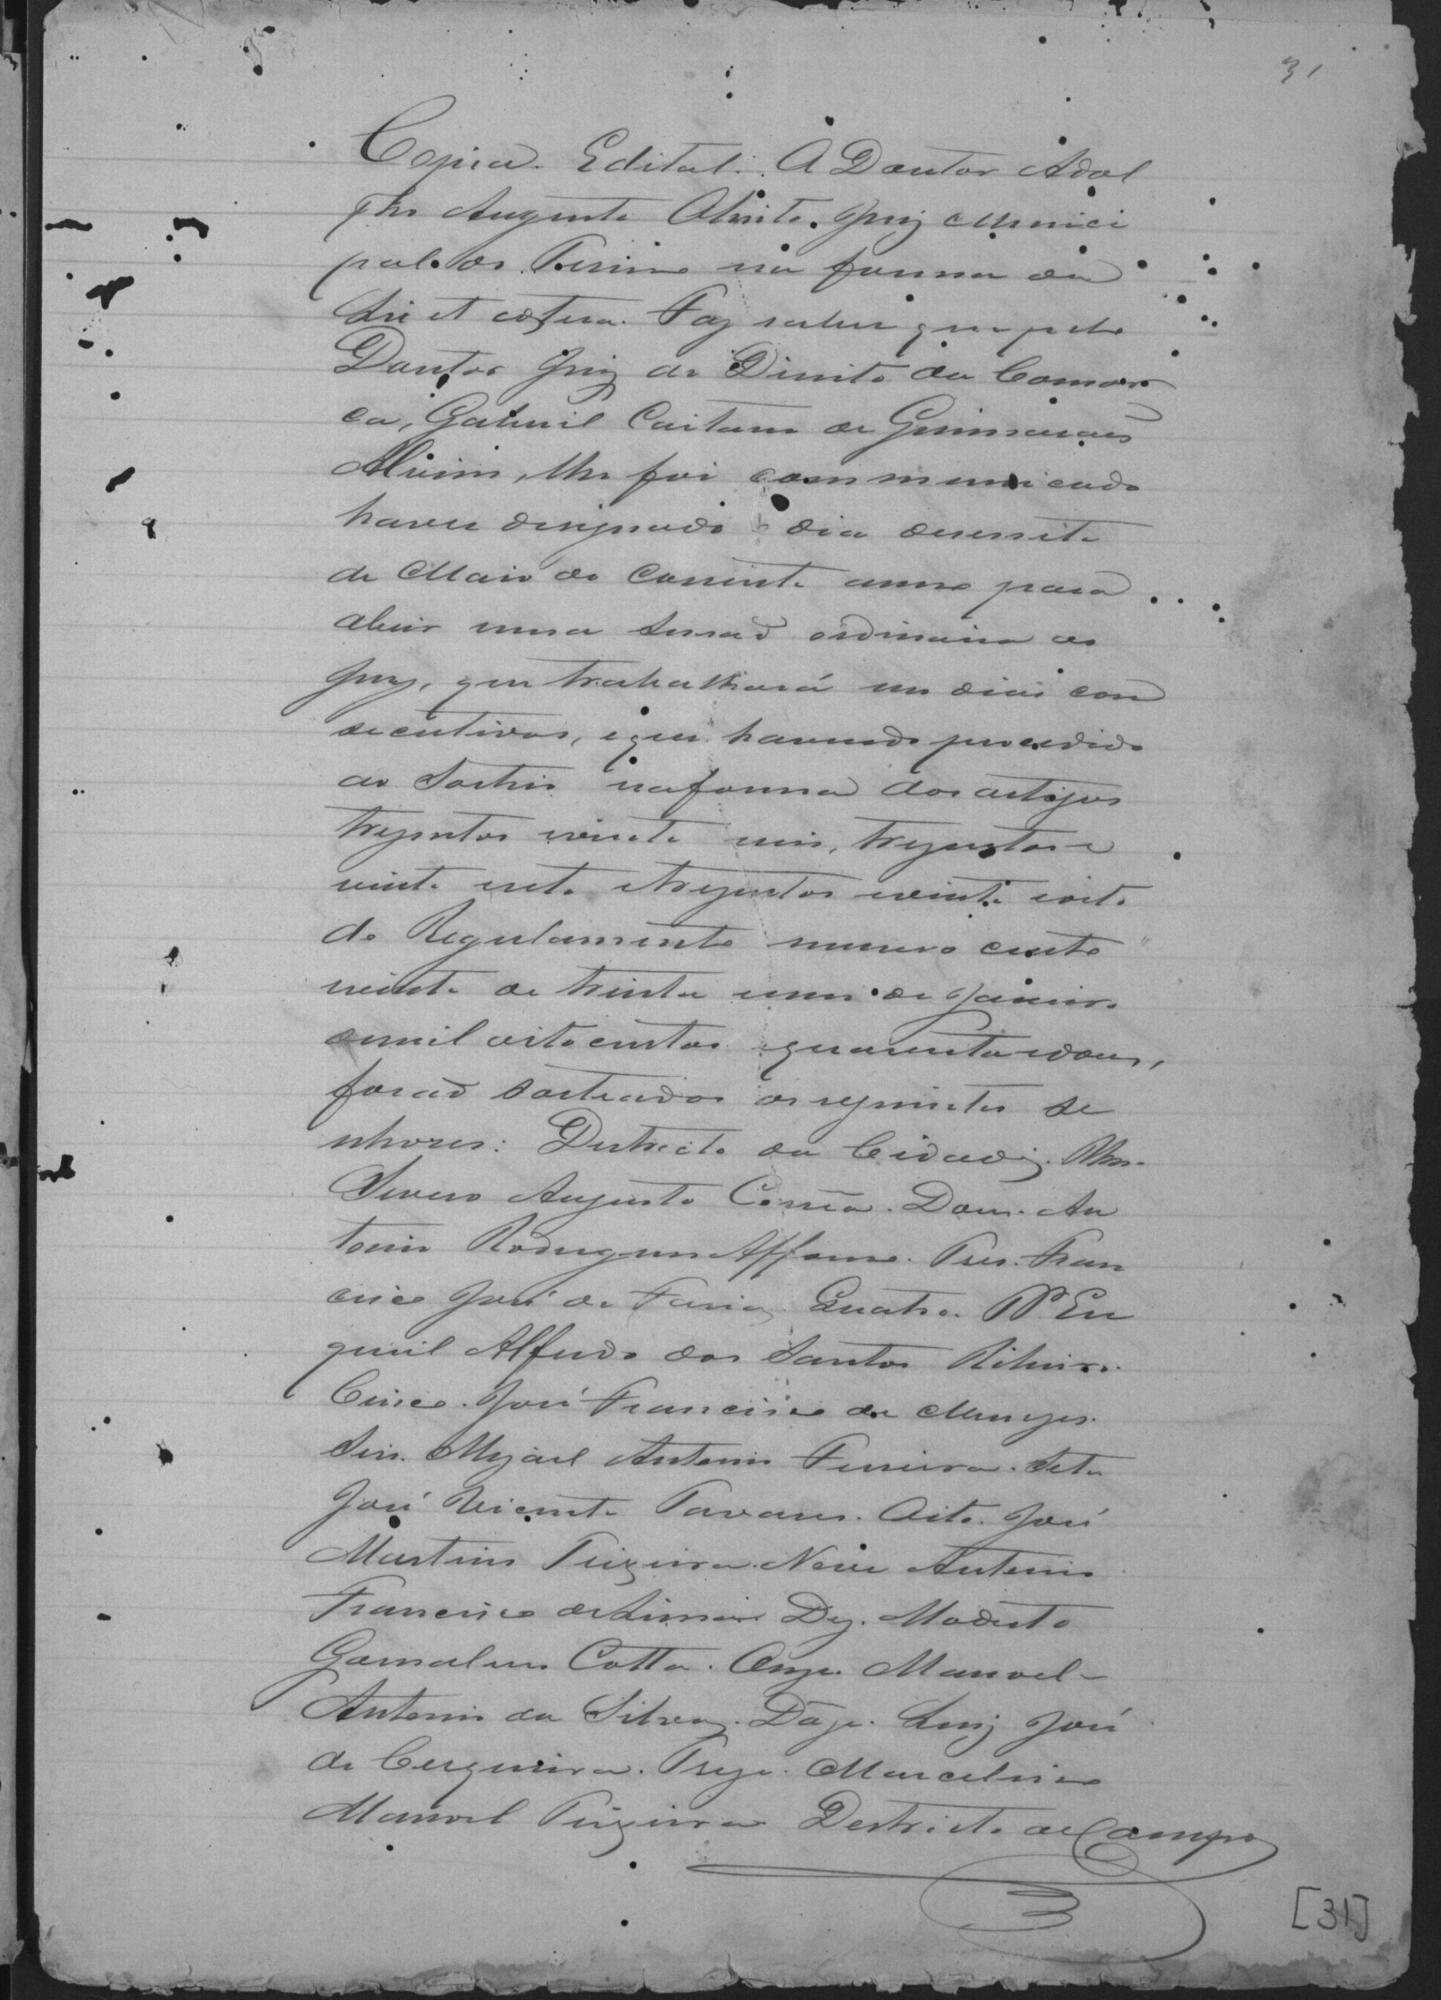 31
Copia. Edital. O Doutor Adol
pho Augusto Olinto. Juiz Munici
pal do Termo na forma da
Lei et cœtera. Faz saber que pelo
Doutor Juiz de Direito da Comar
ca, Gabriel Caitano de Guimarães
Alvim, lhe foi communicado
haver designado o dia desesseite
de Maio do Corrente anno para
abrir uma Sessaõ ordinaria do
Jury, que trabalhará em dias con
secutivos, e que havendo procedido
ao Sorteio na forma dos artigos
trezentos e vinte seis, trezentos e
vinte sete e trezentos e vinte e oito
do Regulamento numero cento
vinte de trinta e um de Janeiro
de mil oito centos e quarenta e dous,
foraõ sorteados os seguintes Se
nhores: Destricto da Cidade. Um.
Severo Augusto Corrêa. Dous. An
tonio Rodrigues Affonso. Tres. Fran
cisco José de Faria. Quatro. Pe. Eu
Alfredo dos Santos Ribeiro.
Cinco. José Francisco de Menezes.
Seis. Mizael Antonio Ferreira. Sete
José Vicente Tavares. Oito. José
Martins Teixeira. Nove Antonio
Francisco de Lima Dez. Modesto
Cotta. Onze. Manoel
Antonio da Silva. Doze. Luiz José
de Cerqueira. Treze. Marcelino
Manoel Teixeira Destricto de Campo
[31]